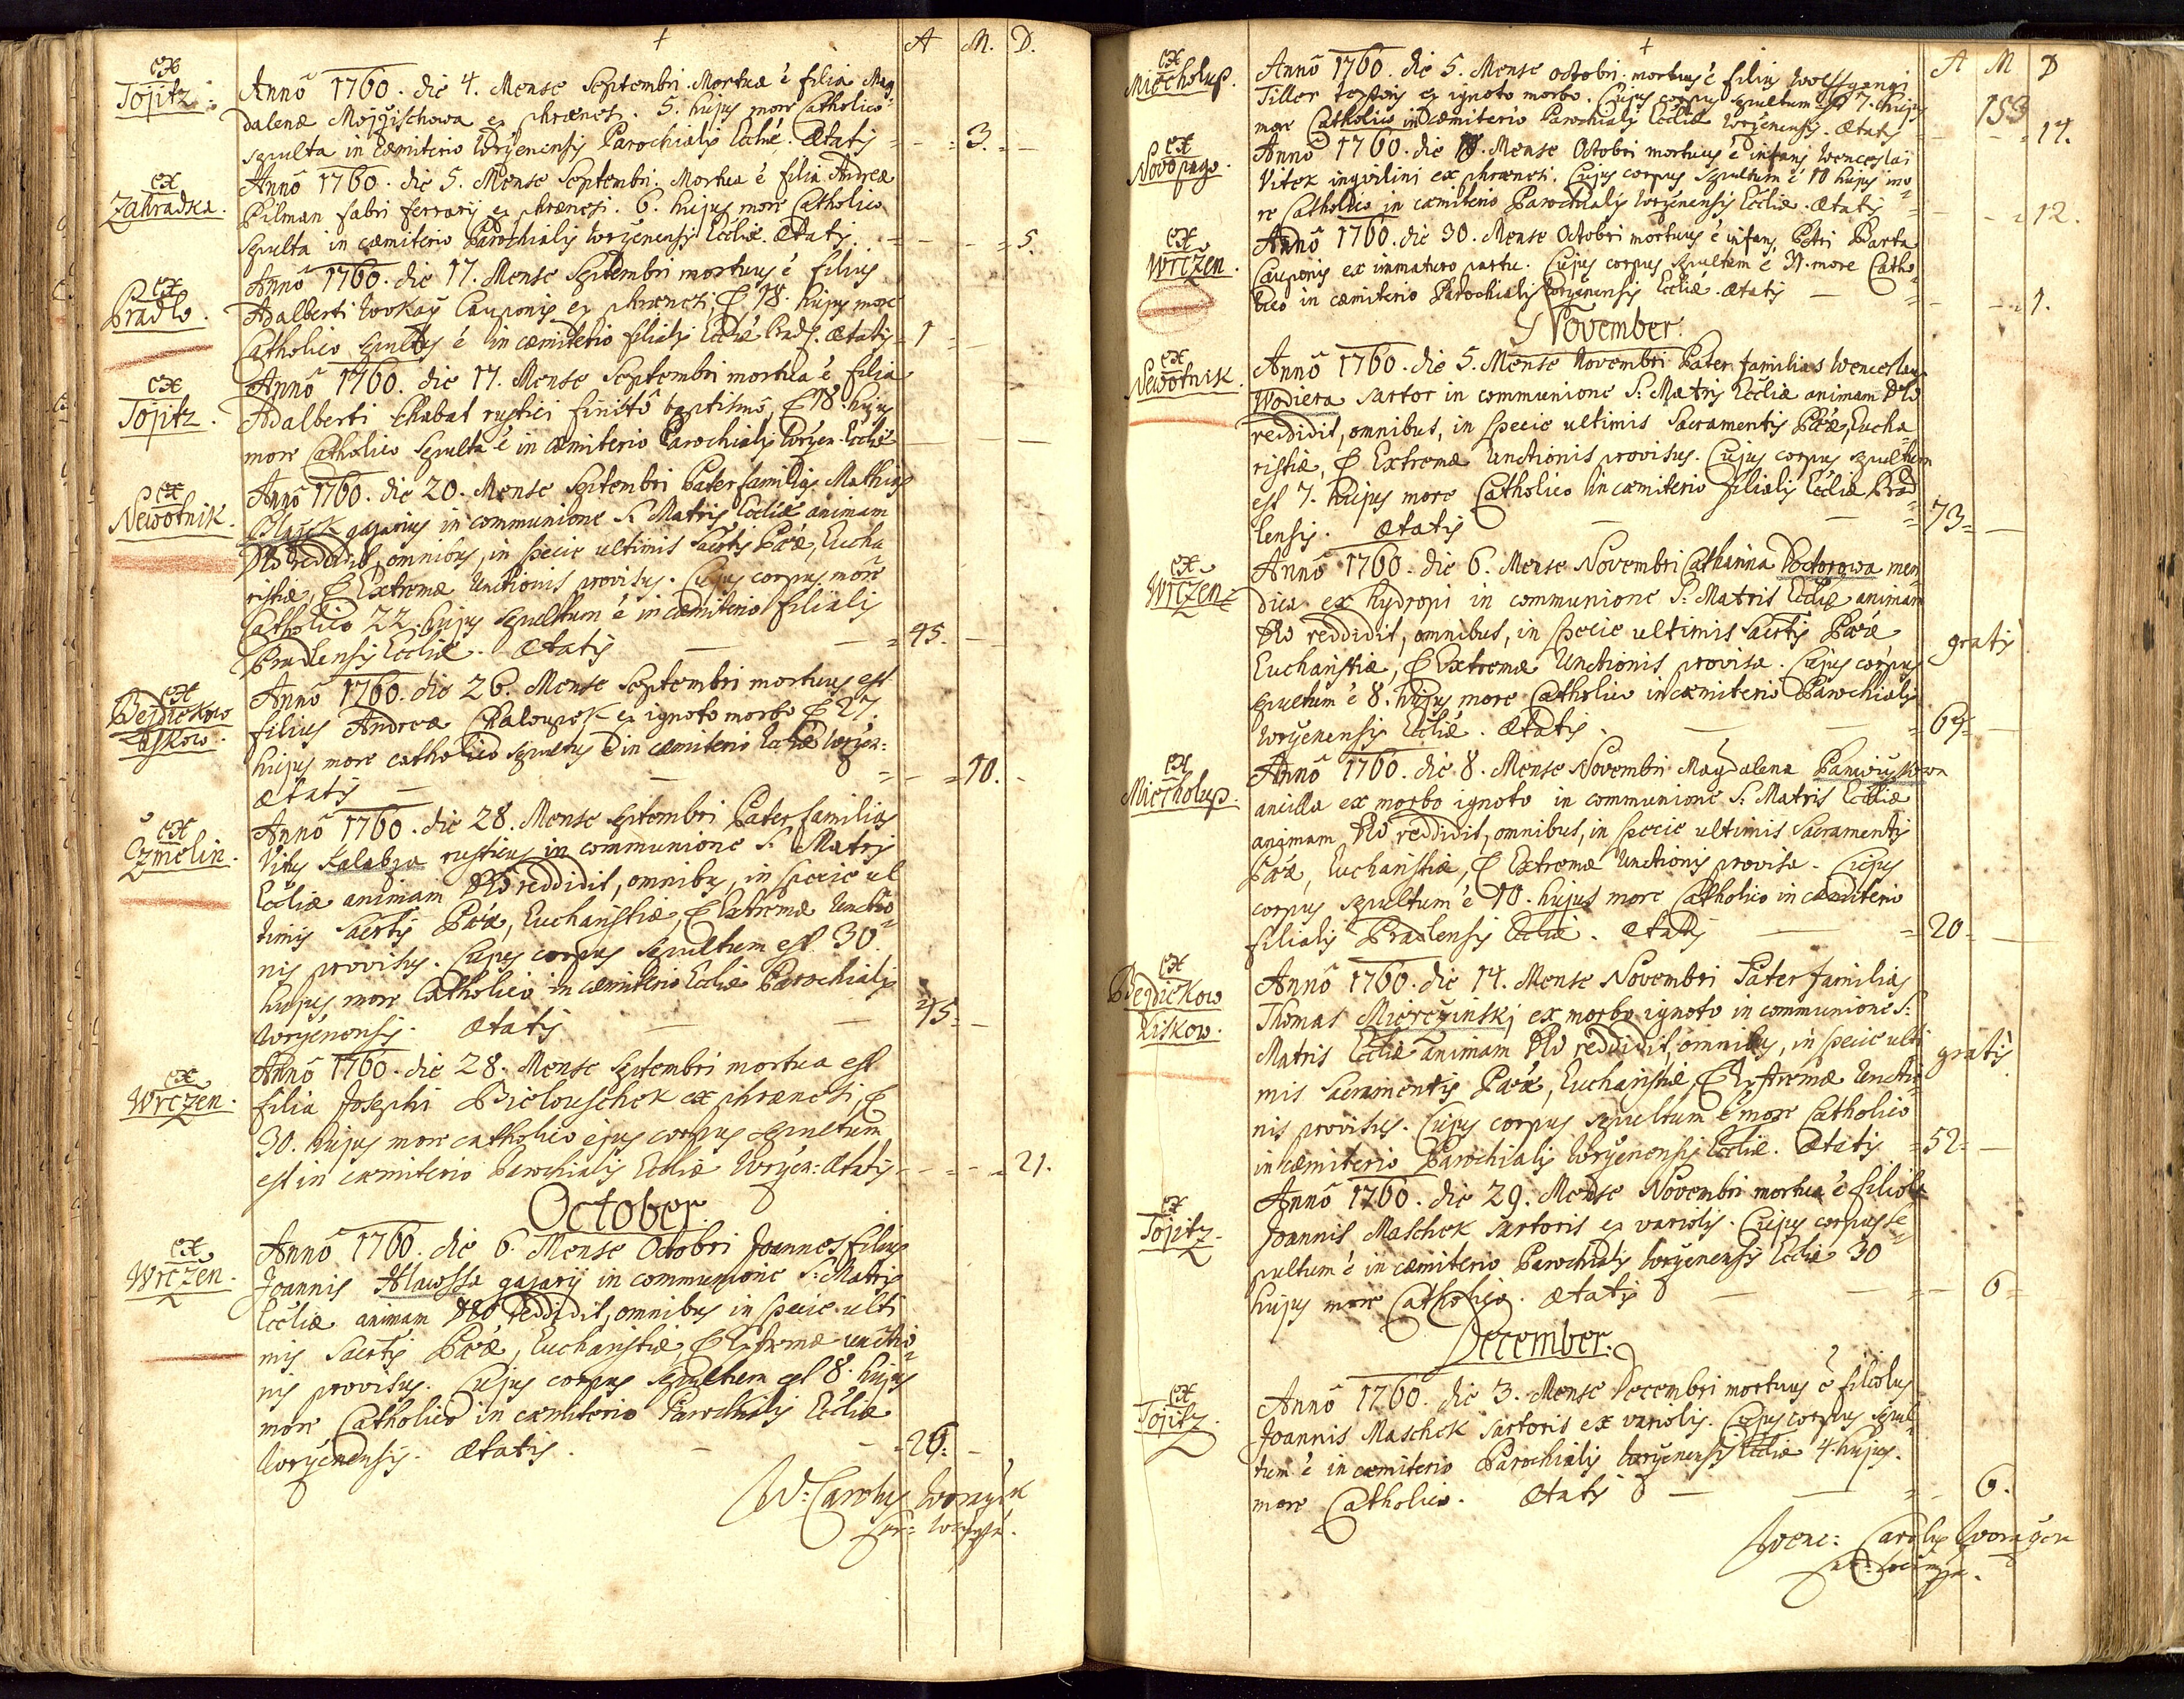 A M. D.
ex Tojitz.
Annô 1760. die 4. Mense Septembri. Mortua ê filia Mag
dalenæ Mojžischowa ex phrænesi. 5. hujus more Catholico
sepulta in cæmiterio Worženensis Parochialis Eccliæ. Ætatis = - = 3. = -
ex Zahradka.
Annô 1760. die 5. Mense Septembri. Mortua ê filia Andreæ
Pilman fabri ferrarij ex phrænesi. 6. hujus more Catholico
sepulta in cæmiterio Parochialis Worženensis Eccliæ. Ætatis. = - - = 5.
ex Pradlo.
Annô 1760. die 17. Mense Septembri mortuus ê filius
Adalberti Wokač Cauponis ex phrænesi, & 18. hujus more
Catholico sepultus ê in cæmiterio filialis Eccliæ Pradl. Ætatis = 1 = -
ex Tojitz.
Annô 1760. die 17. Mense Septembri mortua ê filia
Adalberti Chabat rustici finitô baptismô, & 18. hujus
more Catholico Sepulta ê in cæmiterio Parochialis Woržen. Eccliæ - - -
ex Newotnik.
Annô 1760. die 20. Mense Septembri Pater familias Mathias
gažarius in communione S. Matris Eccliæ animam
Dẽo reddidit, omnibus, in specie ultimis Sacrtis Pœ̃æ, Eucha
ristiæ, & Extremæ Unctionis provisus. Cujus corpus more
Catholico 22. hujus sepultum ê in cæmiterio filialis
Pradlensis Eccliæ. Ætatis - - = 45. -
ex Bezdiekow Liskow.
Annô 1760. die 26. Mense Septembri mortuus est
filius Andreæ Chaloupek ex ignoto morbo & 27.
hujus more catholico sepultus ê in cæmiterio Eccliæ Woržen:
Ætatis - - = - = 10. -
ex Czmelin.
Annô 1760. die 28. Mense Septembri Pater familias
Vitus Kalabza rusticus in communione S. Matris
Eccliæ animam Dẽo reddidit, omnibus, in specie ul
timis Sacrtis Pœ̃æ, Eucharistiæ, & Extremæ Unctio
nis provisus. Cujus corpus sepultum est 30.
hujus more Catholico in cæmiterio Eccliæ Parochialis
Worženensis. Ætatis - - = 45. -
ex Wrczen.
Annô 1760. die 28. Mense Septembri mortua est
filia Josephi Bielouschek ex phrænesi, &
30. hujus more catholico ejus corpus sepultum
est in cæmiterio Parochialis Eccliæ Woržen: Ætatis - - = 21.
October.
ex Wrczen.
Annô 1760. die 6. Mense Octobri Joannes filius
Joannis Hlawssa gažarij in communione S. Matris
Eccliæ animam Dẽo reddidit, omnibus in specie ulti
mis Sacrtis Pœ̃æ, Eucharistiæ, & Extremæ unctio
nis provisus. Cujus corpus sepultum est 8. hujus
more Catholico in cæmiterio Parochialis Eccliæ
Worženensis. Ætatis. - - = 26. -
W: Carolus
A M D
153
ex Miecholup.
Annô 1760. die 5. Mense octobri mortuus ê filius Wolffgangi
Tiller textoris ex ignoto morbo. Cujus corpus sepultum ê 7. hujus
more Catholico in cæmiterio Parochialis Eccliæ Worženensis. Ætatis - - = 14.
ex Novo pago.
Annô 1760. die 18. Mense Octobri mortuus ê infans Wenceslai
Vitek inquilini ex phrænesi. Cujus corpus sepultum ê 10 hujus mo
re Catholico in cæmiterio Parochialis Worženensis Eccliæ. Ætatis - - = 12.
ex Wrczen.
Annô 1760. die 30. Mense Octobri mortuus ê infans Petri Barta
Cauponis ex immaturo partu. Cujus corpus sepultum ê 31. more Catho
lico in cæmiterio Parochialis Worženensis Eccliæ. Ætatis - = - - = 1.
November.
ex Newotnik.
Annô 1760. die 5. Mense Novembri Pater familias Wenceslaus
Wodiera sartor in communione S. Matris Eccliæ animam Dẽo
reddidit, omnibus, in specie ultimis Sacramentis Pœ̃æ, Eucha
ristiæ, & Extremæ Unctionis provisus. Cujus corpus sepultum
est 7. hujus more Catholico in cæmiterio filialis Eccliæ Prad
lensis. Ætatis - - = 73 = -
ex Wrczen.
Annô 1760. die 6. Mense Novembri Catharina Doctorowa men
dica ex hydropi in communione S. Matris Eccliæ animam
Dẽo reddidit, omnibus, in specie ultimis Sacrtis Pœ̃æ
Eucharistiæ, & Extremæ Unctionis provisa. Cujus corpus gratis
sepultum ê 8. hujus more Catholico in cæmiterio Parochialis
Worženensis Eccliæ. Ætatis. - - = 64 = -
ex Miecholup.
Annô 1760. die 8. Mense Novembri Magdalena
ancilla ex morbo ignoto in communione S. Matris Eccliæ
animam Dẽo reddidit, omnibus, in specie ultimis Sacramentis
Pœ̃æ, Eucharistiæ, & Extremæ Unctionis provisa. Cujus
corpus sepultum ê 10. hujus more Catholico in cæmiterio
filialis Pradlensis Eccliæ. Ætatis - = 20 = -
ex Bezdiekow Liskow.
Annô 1760. die 14. Mense Novembri Pater familias
Thomas Mierczinskj ex morbo ignoto in communione S.
Matris Eccliæ animam Dẽo reddidit, omnibus, in specie ulti gratis
mis Sacramentis Pœ̃æ, Eucharistiæ, & Extremæ Unctio
nis provisus. Cujus corpus sepultum ê more Catholico
in cæmiterio Parochialis Worženensis Eccliæ. Ætatis = 52 = -
ex Tojitz.
Annô 1760. die 29. Mense Novembri mortua ê filiola
Joannis Maschek sartoris ex variolis. Cujus corpus se
pultum ê in cæmiterio Parochialis Worženensis Eccliæ 30
hujus more Catholico. Ætatis - - = - 6 =
December.
ex Tojitz.
Annô 1760. die 3. Mense Decembri mortuus ê filiolus
Joannis Maschek sartoris ex variolis. Cujus corpus sepul
tum ê in cæmiterio Parochialis Worženensis Eccliæ 4. hujus.
more Catholico. Ætatis - - = - 6.
Wenc: Carolus